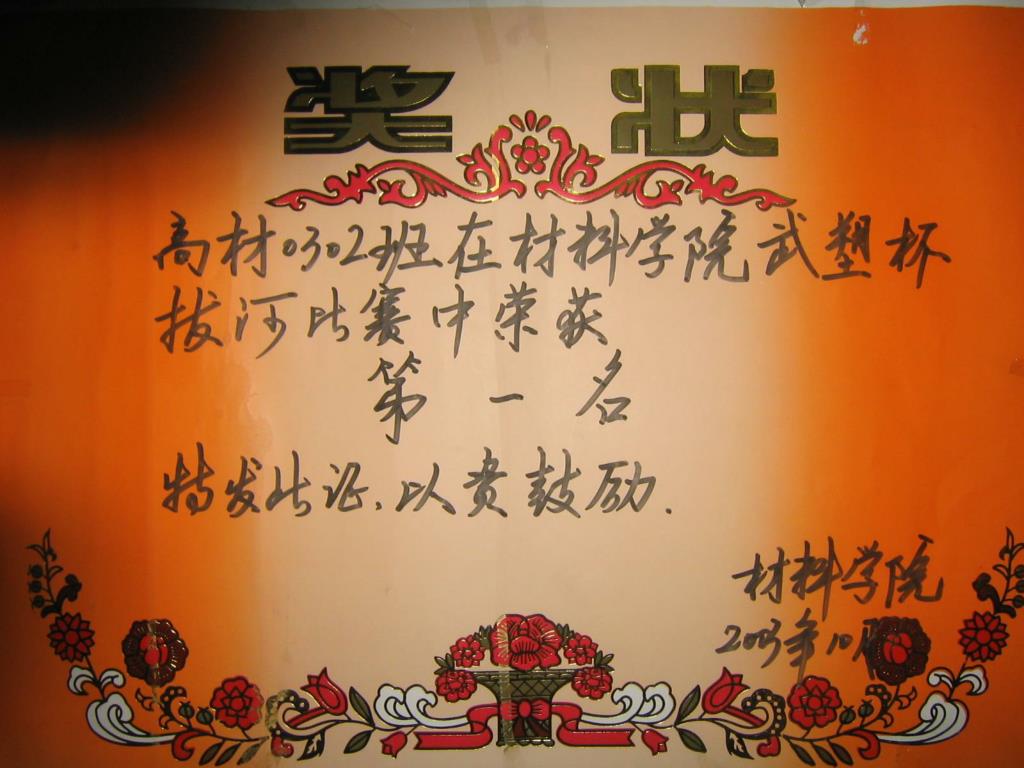 奖状
高材0302班在材料学院武塑杯
拔河比赛中荣获
第一名
特发此证,以资鼓励.
材料学院
2003年10月